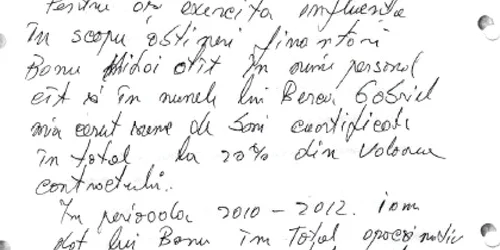 Pentru a exercita influenta
în scopu obtineri finantării
Banu Mihai atît în nume personal
cît si în numele lui Berca Gabriel
mia cerut sume de bani cuantificate
în total la 20% din valoarea
contractului.
În perioada 2010 - 2012. iam
dat lui Banu în Total aproximativ